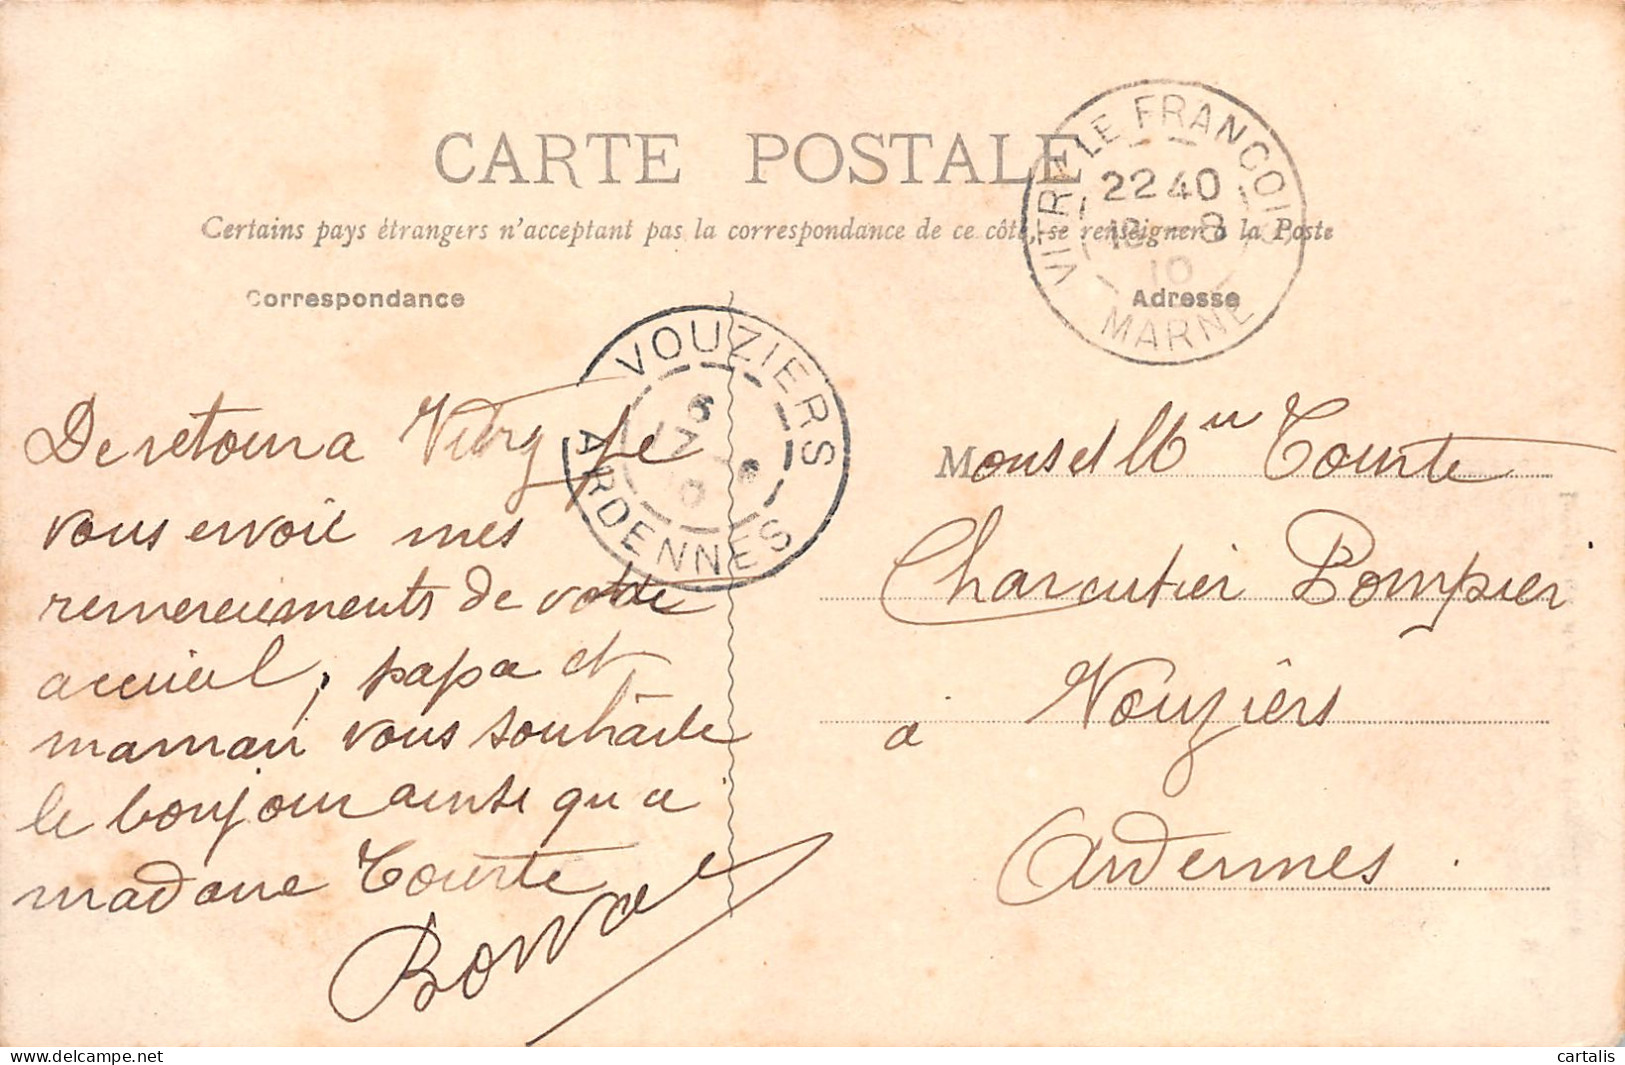 CARTE POSTALE
Certains pays étrangers n'acceptent pas la correspondance de ce côté, se renseigner à la Poste
Correspondance
Adresse
VITRY LE FRANCOIS
22 40
10
MARNE
VOUZIERS
ARDENNES
De retour a Vitry je
vous envoie mes
remerciements de votre
accueil, papa et
maman vous souhaite
le bonjour ainsi qu a
madame Tourte
Mons et Mm Tourte
Charcutier Pompier
a Vouziers
Ardennes.
delcampe.net
cartalis